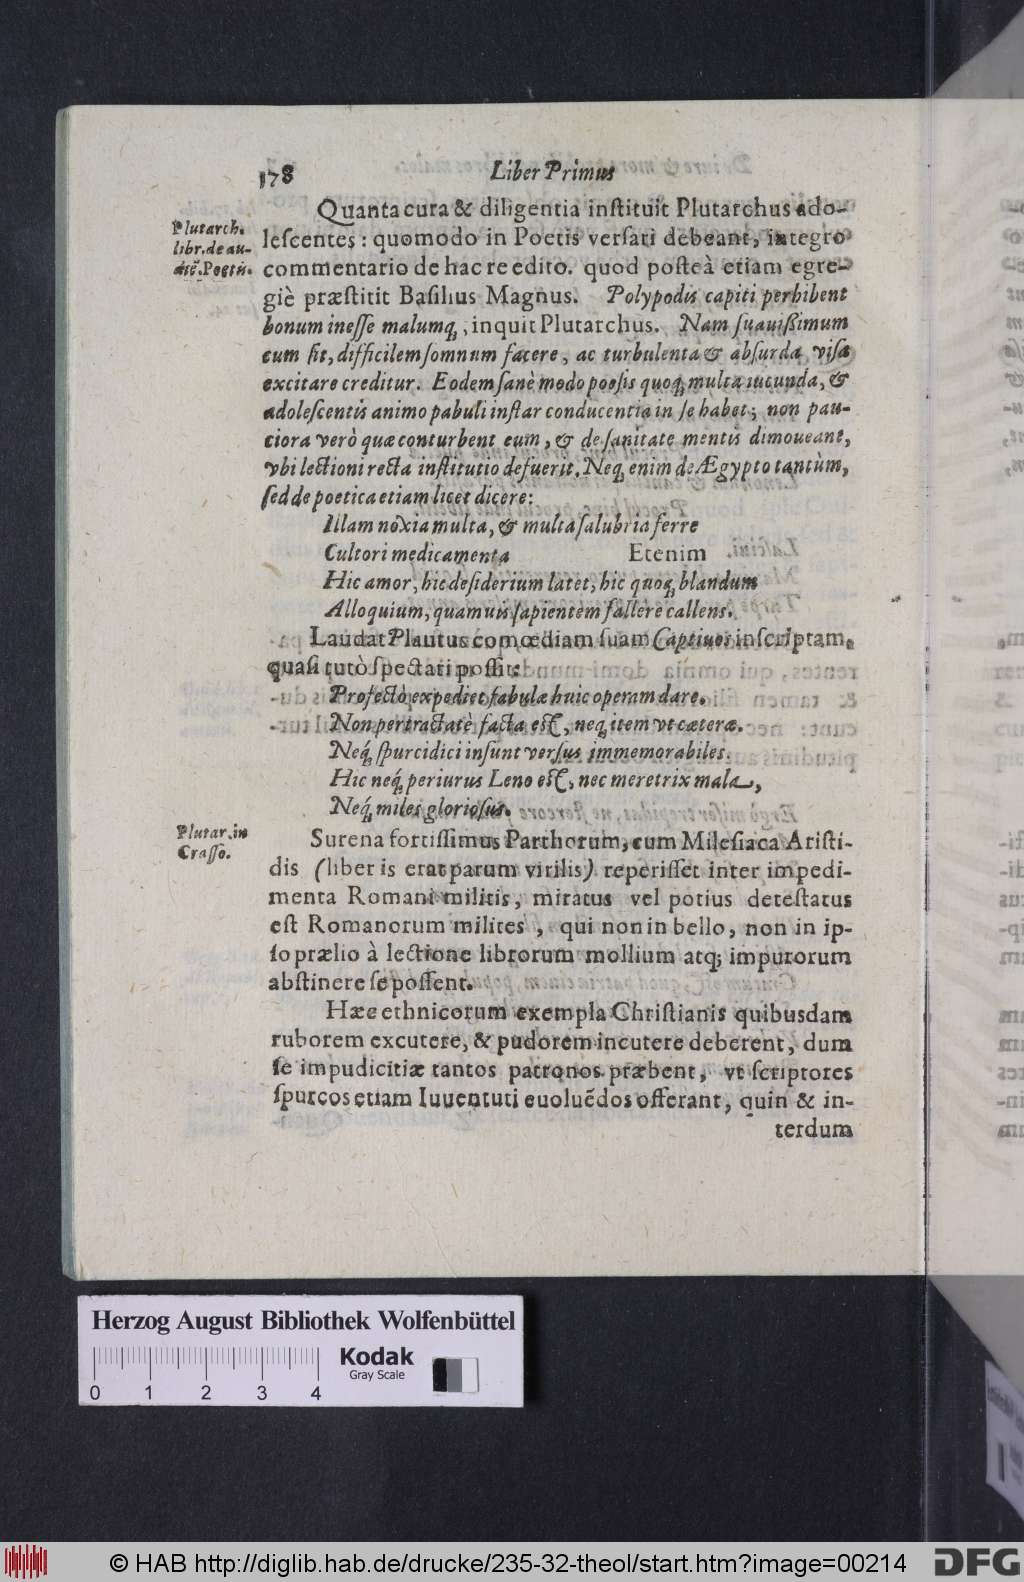 178 Liber Primus
Quanta cura & diligentia inſtituit Plutarchus ado-
Plutarch.
libr. de au-
diẽ. Poetis.
leſcentes: quomodo in Poetis verſari debeant, integro
commentario de hac re edito. quod poſteà etiam egre-
giè præſtitit Baſilius Magnus. Polypodis capiti perhibent
bonum ineſſe malumq;, inquit Plutarchus. Nam ſuauißimum
cum ſit, difficilem ſomnum facere, ac turbulenta & abſurda viſa
excitare creditur. Eodem ſanè modo poeſis quoq; multa iucunda, &
adoleſcentis animo pabuli inſtar conducentia in ſe habet; non pau-
ciora verò quæ conturbent eum, & de ſanitate mentis dimoueant,
vbi lectioni recta inſtitutio defuerit. Neq; enim de Ægypto tantùm,
ſed de poetica etiam licet dicere:
Illam noxia multa, & multa ſalubria ferre
Cultori medicamenta Etenim
Hic amor, hic deſiderium latet, hic quoq; blandum
Alloquium, quamuis ſapientem fallere callens.
Laudat Plautus comœdiam ſuam Captiuos inſcriptam,
quaſi tutò ſpectari poſſit:
Profectò expediet fabulæ huic operam dare.
Non pertractatè facta eſt, neq; item vt cæteræ.
Neq́; ſpurcidici inſunt verſus immemorabiles.
Hic neq́; periurus Leno eſt, nec meretrix mala,
Neq́; miles glorioſus.
Plutar. in
Craſſo.
Surena fortiſſimus Parthorum, cum Mileſiaca Ariſti-
dis (liber is erat parum virilis) reperiſſet inter impedi-
menta Romani militis, miratus vel potius deteſtatus
eſt Romanorum milites, qui non in bello, non in ip-
ſo prælio à lectione librorum mollium atq; impurorum
abſtinere ſe poſſent.
Hæc ethnicorum exempla Chriſtianis quibusdam
ruborem excutere, & pudorem incutere deberent, dum
ſe impudicitiæ tantos patronos præbent, vt ſcriptores
ſpurcos etiam Iuventuti euoluẽdos offerant, quin & in-
terdum
Herzog August Bibliothek Wolfenbüttel
Kodak
Gray Scale
0 1 2 3 4
© HAB http://diglib.hab.de/drucke/235-32-theol/start.htm?image=00214
DFG